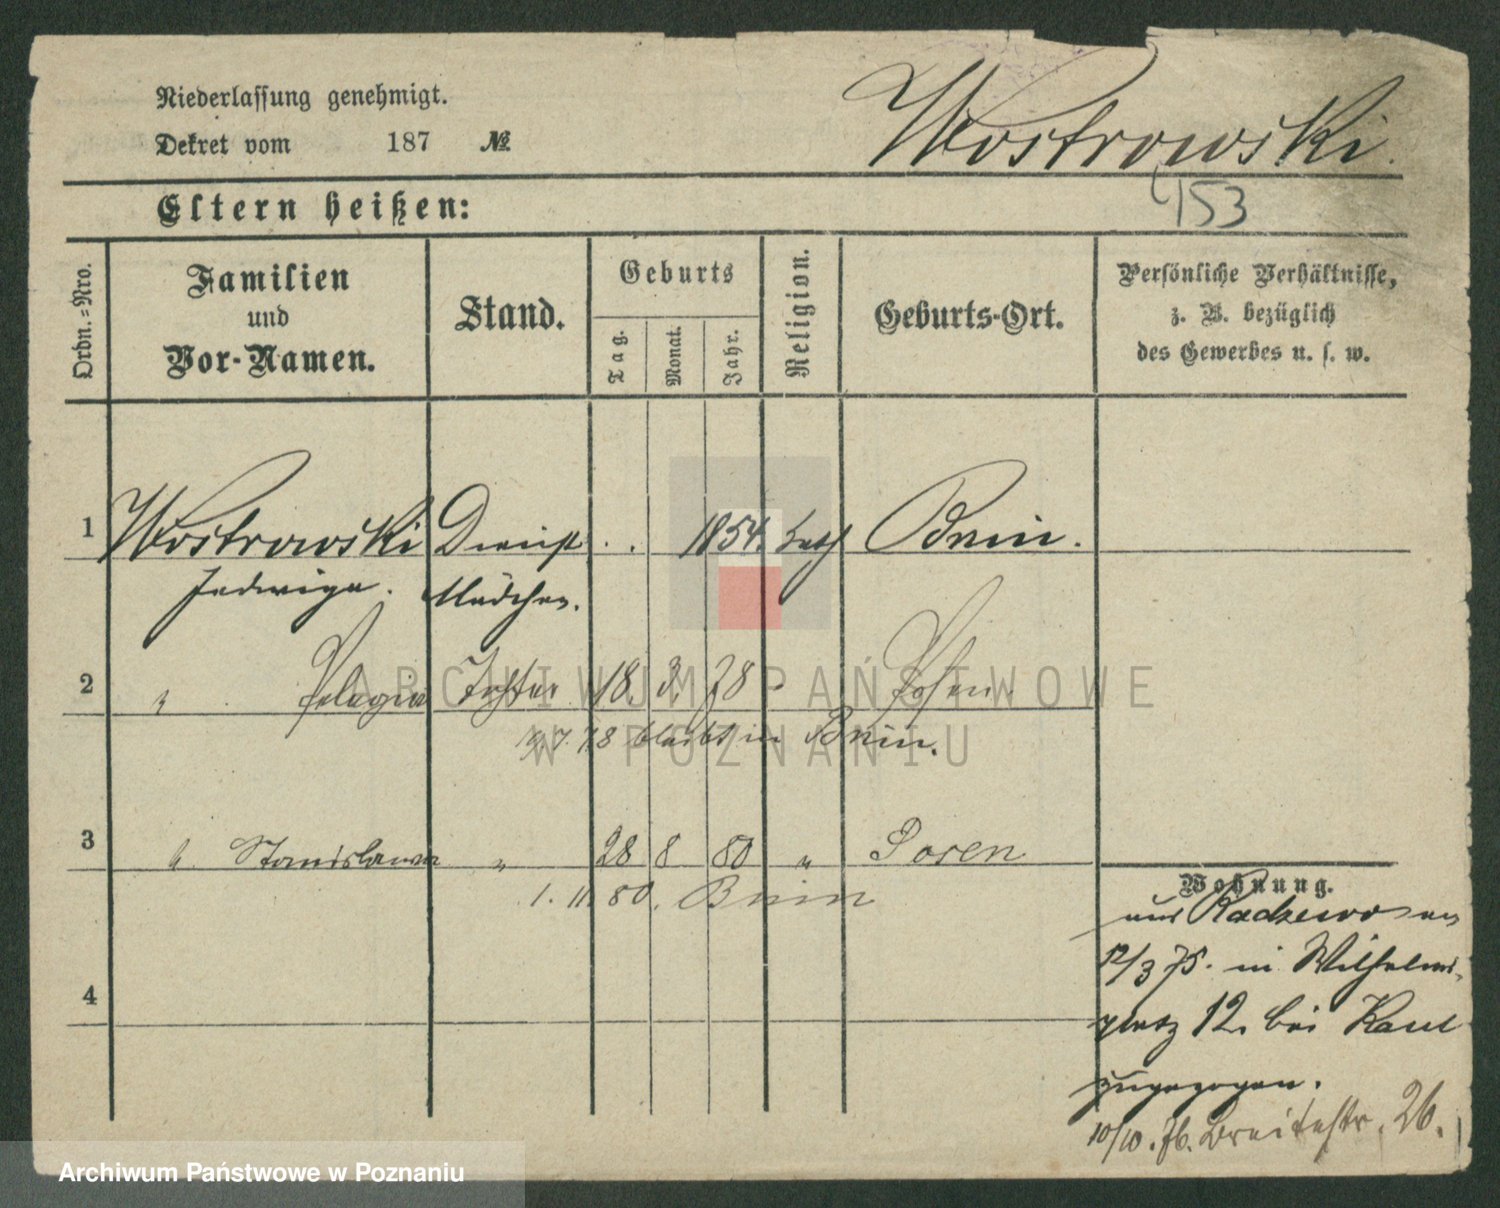 Niederlassung genehmigt.
Dekret vom 187 №
Wostrowski.
153
Eltern heißen:
Ordn.=Nro.
Familien und Vor-Namen.
Stand.
Geburts
Tag.
Monat.
Jahr.
Religion.
Geburts-Ort.
Persönliche Verhältnisse,
z. B. bezüglich
des Gewerbes u. s. w.
1 Wostrowski Dienst . . 1854. kath Bnin.
Jadwiga. Mädchen.
2 " Pelagia Tochter 18. 3. 78 Posen.
7. 78 bleibt in Bnin.
3 " Stanislawa " 28 8 80 " Posen
1. 11. 80. Bnin
4
Wohnung.
aus Radzewo am
12/3 75. in Wilhelms-
platz 12. bei
zugezogen.
10/10. 76. Breitestr. 26.
ARCHIWUM PAŃSTWOWE
W POZNANIU
Archiwum Państwowe w Poznaniu